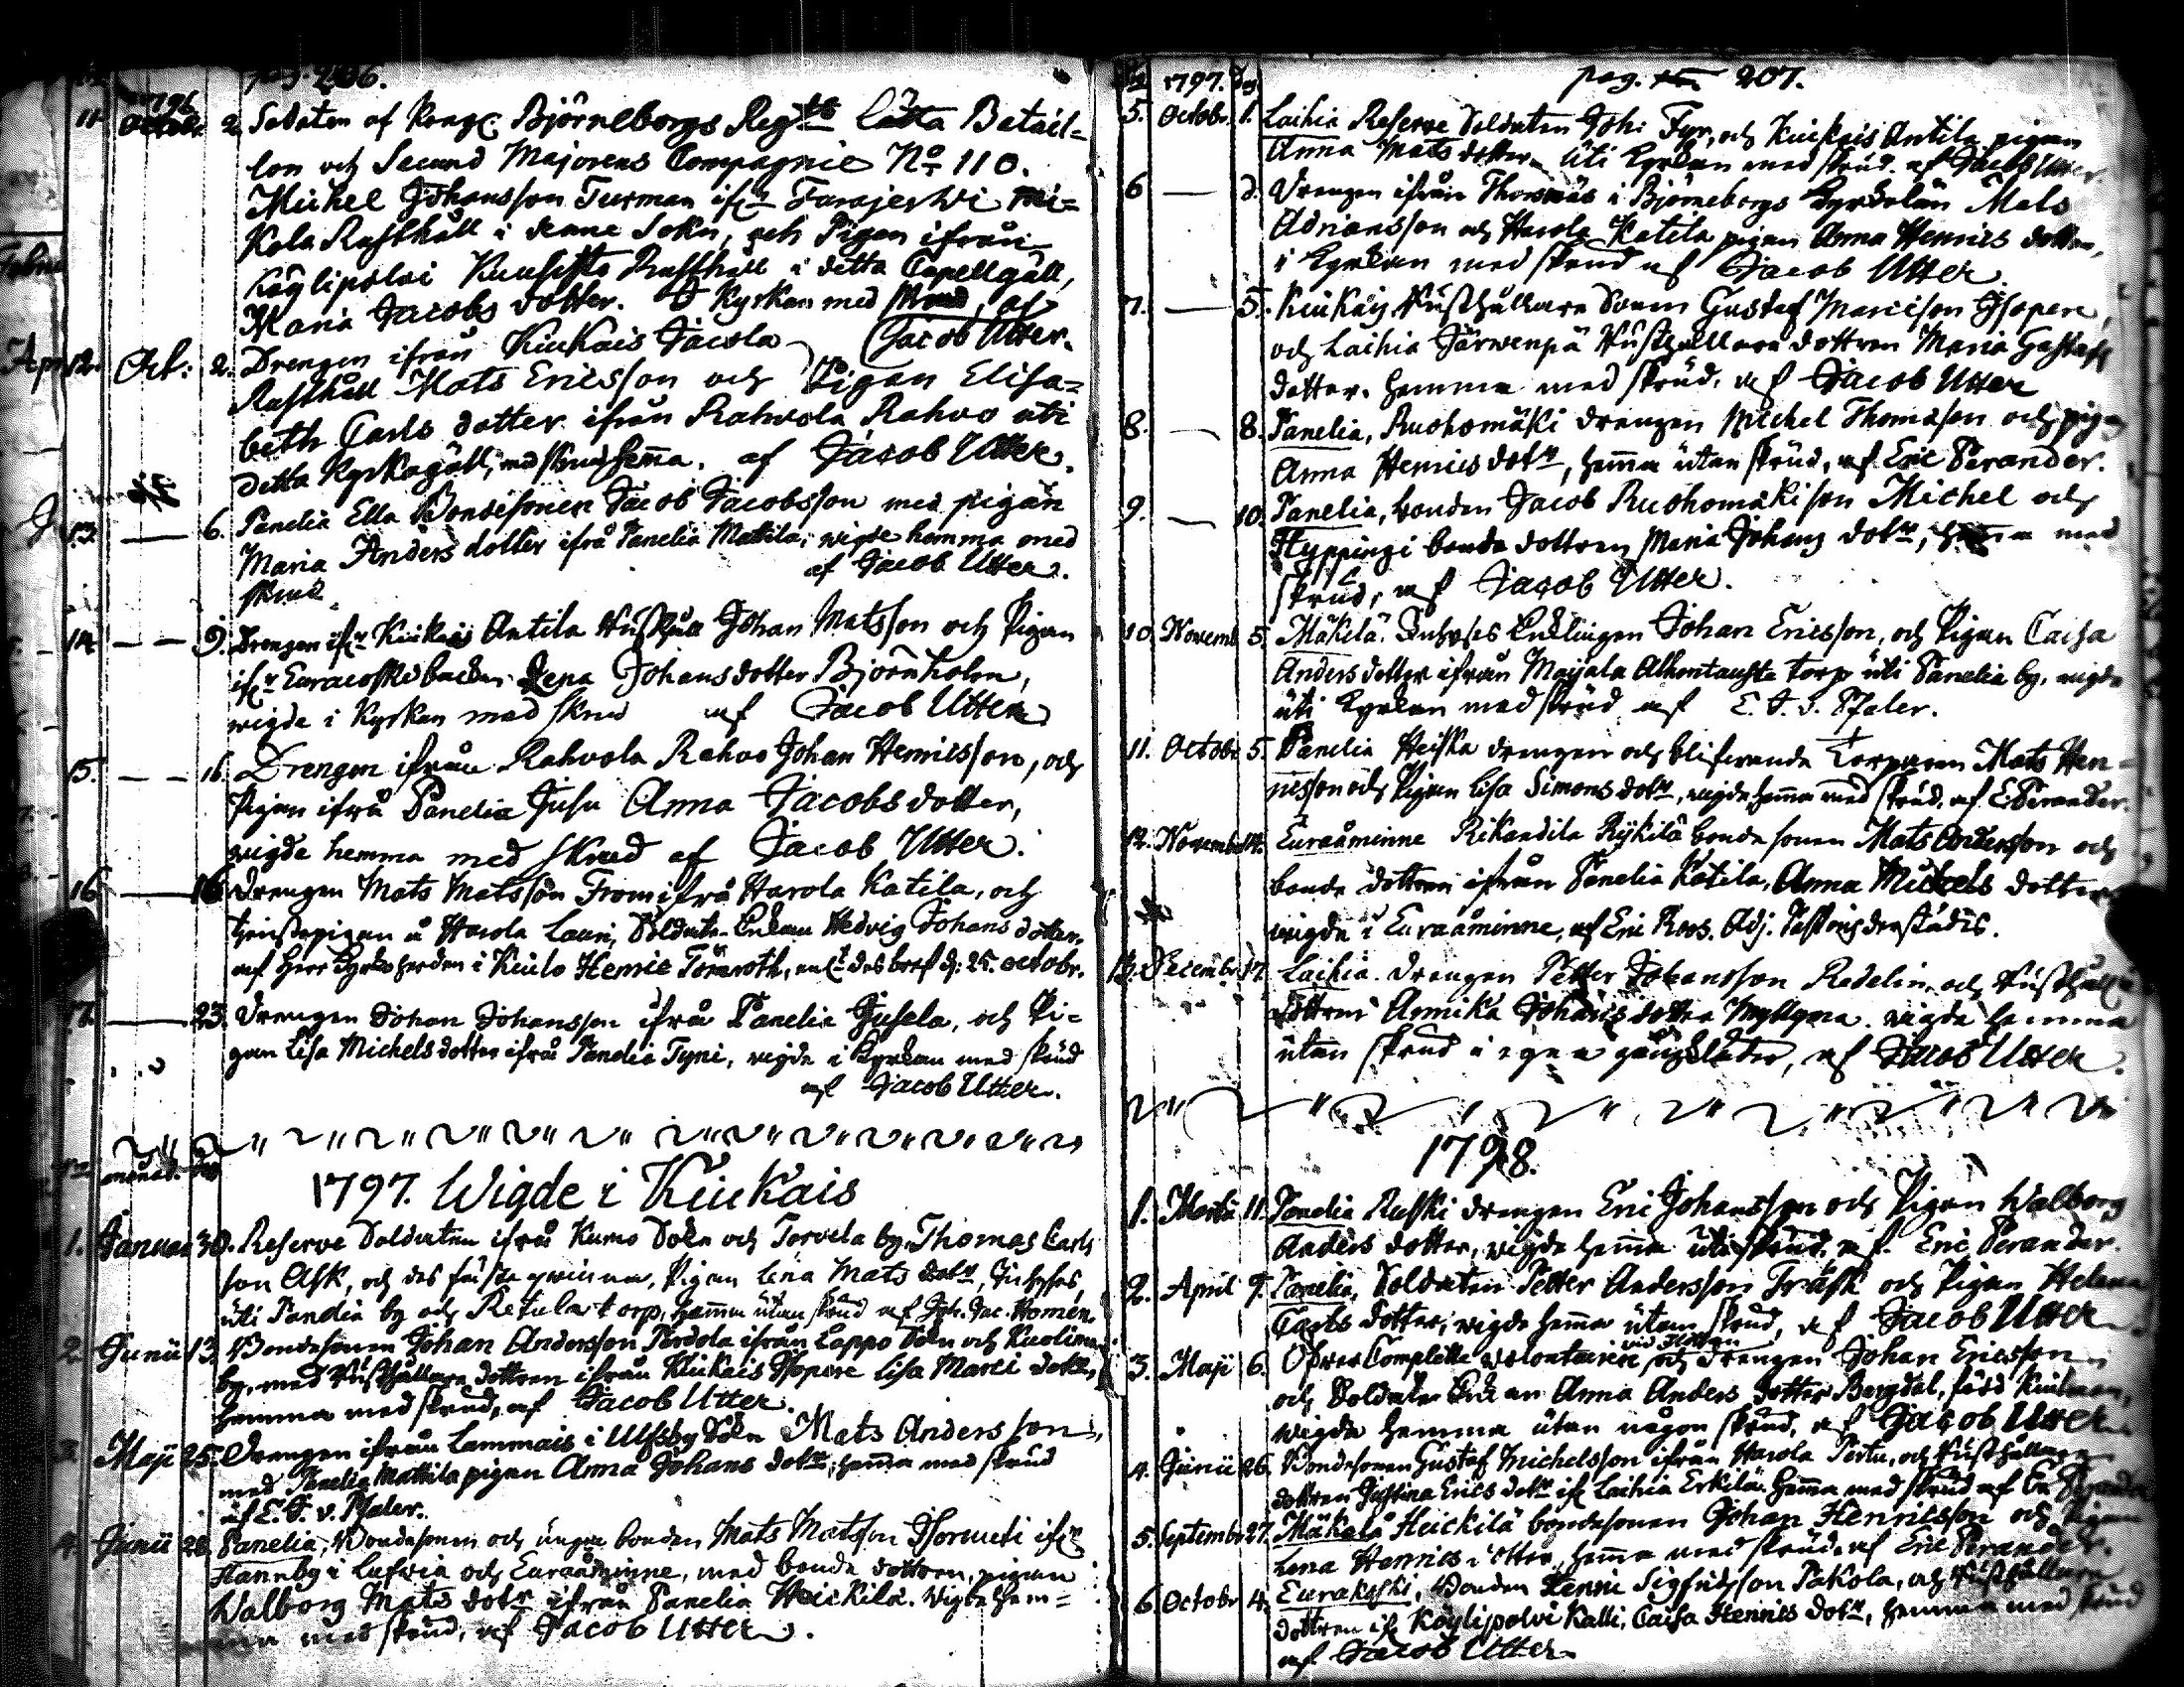 pag. 206.
1796
11 Octob: 2. Soldaten af Kongl. Björneborgs Reg:te Lätta Batail=
lon och Secund Majorens Compagnie No 110.
Michel Johansson Turman ifr: Farajerwi
Kola Rusthåll i denne Sokn, och Pigan ifrån
Köylipolvi Kuusisto Rusthåll i detta Capellgäll,
Maria Jacobs dotter. I Kyrkan med skrud, af
Jacob Utter.
12. Oct: 2. Drengen ifrån Kiukais Jacola
Rusthåll Mats Ericsson och Pigan Elisa=
beth Carls dotter ifrån Rahvola Rahvo uti
detta Kyrkogäll, med skrud hema. af Jacob Utter.
13. — 6. Panelia Ella Bondesonen Jacob Jacobsson med pigan
Maria Anders dotter ifrå Panelia Mattila, wigde hemma med
skrud. af Jacob Utter.
14. — — 9. Drengen ifr: Kiukais Antila Rusthåll Johan Matsson och Pigan
ifr: Euracoski Lena Johansdotter Björnholm,
wigde i Kyrkan med skrud af Jacob Utter
15. — — 16. Drengen ifrån Rahvola Rahvo Johan Henricsson, och
Pigan ifrå Panelia Jusu Anna Jacobs dotter,
wigde hemma med skrud af Jacob Utter.
16 — 16 Drengen Mats Matsson From ifrå Harola Katila, och
tjenstepigan å Harola Lauri, Soldate Enkan Hedvig Johans dotter.
af Herr Kyrkoherden i Kiulo Henric Törnroth, enl: des bref d: 25. octobr.
17. — 23. Drengen Johan Johansson ifrå Panelia Jusela, och Pi=
gan Lisa Michelsdotter ifrå Panelia Tyni, wigde i Kyrkan med skrud
af Jacob Utter.
månad.
1797. Wigde i Kiukais
1. Januar 30. Reserve Soldaten ifrå Kumo Sokn och Torvela by Thomas Carls
son Ask, och des fäste qwinna, Pigan Lena Mats dotr, Inhyses,
uti Panelia by och Retula torp, hemma utan skrud af Joh. Jac. Homén.
2. Junii 13. Bondesonen Johan Andersson Perdola ifrån Lappo Sokn och
by, med Rusthållare dottren ifrån Kiukais Isopere Lisa Marci dotr,
hemma med skrud, af Jacob Utter.
3. Maji 25. Drengen ifrån Lammais i Ulfsby Sokn Mats Andersson,
med Panelia Mattila pigan Anna Johans dotr; hema med skrud
af E. F. v. Pfaler.
4. Junii 28. Panelia, Bondesonen och ungre bonden Mats Matsson ifr:
Hanneby i Lufvia och Euraåminne, med bonde dottren, pigan
Walborg Mats dotr ifrån Panelia Heickilä. Wigde hem=
ma med skrud, af Jacob Utter.
1797. pag. 207.
5. Octobr. 1. Laihia Reserve Soldaten Joh: Fyr, och Kiukais Antila pigan
Anna Mats dotter. Uti Kyrkan med skrud. af Jacob Utter.
6 — d. Drengen ifrån Thorsnäs i Björneborgs Kyrkolän Mats
Adriansson och Harola Katila pigan Anna Henrics dotter,
i Kyrkan med skrud af Jacob Utter.
7. — 5. Kiukais Rusthållare Sonen Gustaf Marcisson Isopere,
och Laihia Järwenpä Rusthållare dottren Maria Gustafs
dotter. hemma med skrud. af Jacob Utter
8. — 8. Panelia, Ruohomäki drengen Michel Thomasson och pigan
Anna Henrics dotr, hema utan skrud, af Eric Perander.
9. — 10. Panelia, bonden Jacob Ruohomäki son Michel och
Hyppingi bonde dottren Maria Johans dotr, hema med
skrud, af Jacob Utter.
10. Novemb. 5. Mäkelä. Inhyses Enklingen Johan Ericsson, och Pigan Caisa
Anders dotter ifrån Mayala Alhontausta torp uti Panelia by, wigde
uti Kyrkan med skrud af E. F. v. Pfaler.
11. Octobr 5. Panelia Heiska drengen och blifwande Torparen Mats Hen=
ricsson och Pigan Lisa Simons dotr, wigde hema med skrud. af E. Perander.
12. Novembr 14. Euraåminne Rikandila Rykilä bonde sonen Mats Andersson och
bonde dottren ifrån Panelia Katila, Anna Michels dotter
wigde i Euraåminne, af Eric Roos. Adj. Pastoris derstädes.
13. Decembr 17. Laihia. drengen Petter Johansson Redelin, och Rusthålls
dottren Annika Johans dotter Myllymä. wigde hemma
utan skrud i egna gångkläder, af Jacob Utter.
1798.
1. Martii 11. Panelia Raski drengen Eric Johansson och Pigan Walborg
Anders dotter, wigde hema uti skrud, af Eric Perander.
2. April 9. Panelia, Soldaten Petter Andersson Träsk och Pigan Helena
Carls dotter, wigde hema utan skrud, af Jacob Utter.
3. Maji 6. Öfver Complette volontairen vid Flottan och drengen Johan Ericsson
och Soldate Enkan Anna Anders dotter Bergdal, född
wigde hemma utan någon skrud, af Jacob Utter.
4. Junii 26. Bondesonen Gustaf Michelsson ifrån Harola Pertu, och Rusthållare
dottren Justina Erics dotr ifr Laihia Erkilä. Hema med skrud af Er. Perander
5. Septembr 27. Mäkelä Heickilä bondesonen Johan Henricsson och Pigan
Lena Henrics dotter, hema med skrud. af Eric Perander.
6. Octobr 4. Eurakoski, Bonden Henric Sigfridsson Pakola, och Rusthållare
dottren ifr Köylispolvi Kalli, Caisa Henrics dotr, hemma med skrud
af Jacob Utter